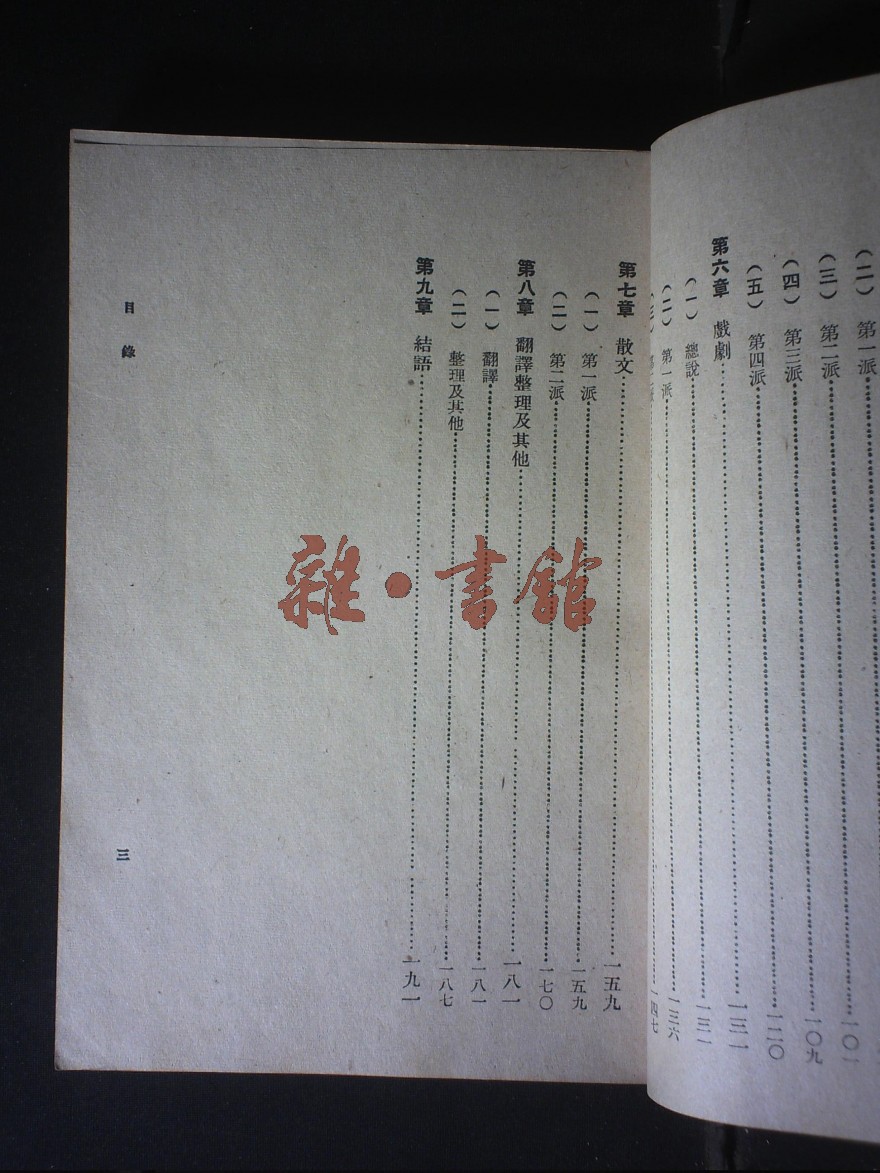 （二）第一派 一〇一
（三）第二派 一〇九
（四）第三派 一二〇
（五）第四派
第六章 戲劇 一三一
（一）總說 一三一
（二）第一派 一三六
一四七
第七章 散文 一五九
（一）第一派 一五九
（二）第二派 一七〇
第八章 翻譯整理及其他 一八一
（一）翻譯 一八一
（二）整理及其他 一八七
第九章 結語 一九一
目錄
三
雜·書館